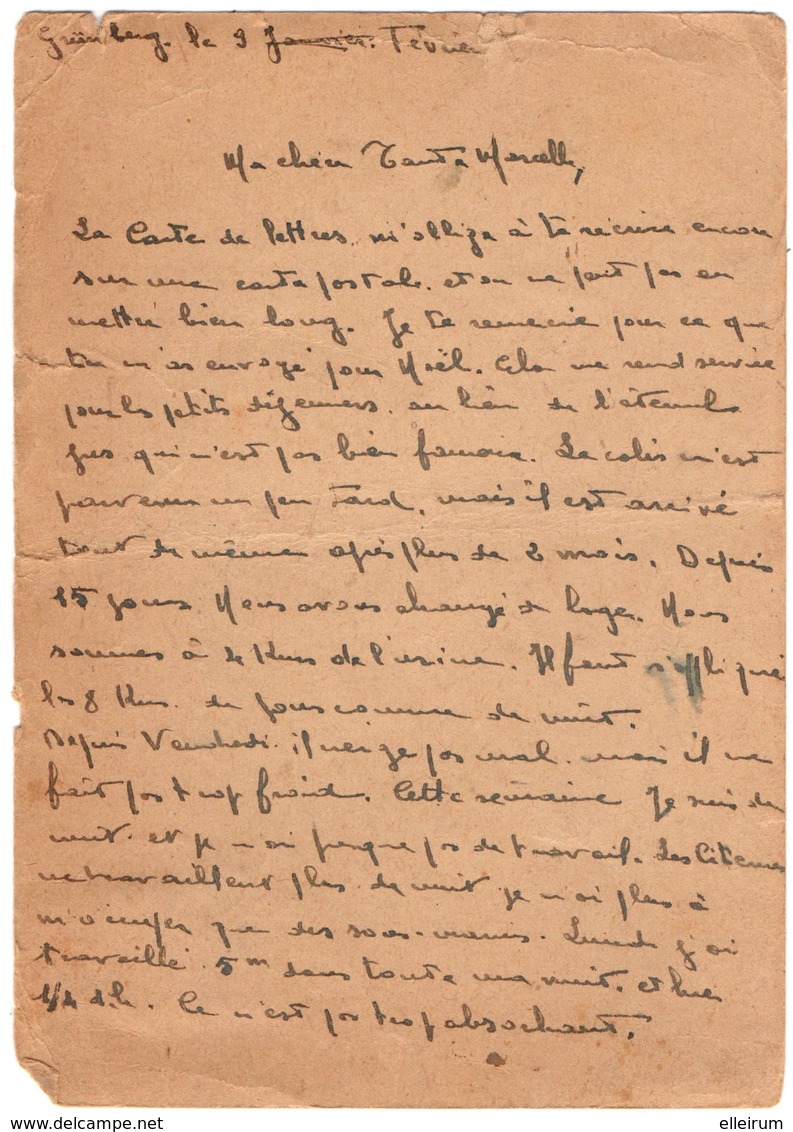 Grünberg. le 9 Janvier. Février
Ma chère Tante Marcelle,
La Carte de lettres, m'oblige à te récrire encore
sur une carte postale. et on ne peut pas en
mettre bien long. Je te remercie pour ce que
tu m'as envoyé pour Noël. Cela me rend service
pour les petits déjeuners. au lieu de l'éternel
jus qui n'est pas bien fameux. Le colis m'est
parvenu un peu tard, mais il est arrivé
tout de même après plus de 2 mois. Depuis
15 jours Nous avons changé de loge. Nous
sommes à 4 Kms de l'usine. Il faut
les 8 Kms. de jour comme de nuit.
Depuis Vendredi. il neige pas mal. mais il ne
fait pas trop froid. Cette semaine Je suis de
nuit. et je n'ai presque pas de travail. Les
ne travaillent plus de nuit je n'ai plus à
m'occuper que des sous-marins. Lundi j'ai
travaillé 5m dans toute ma nuit. et hier
1/4 d.h. Ce n'est pas trop
elleirum